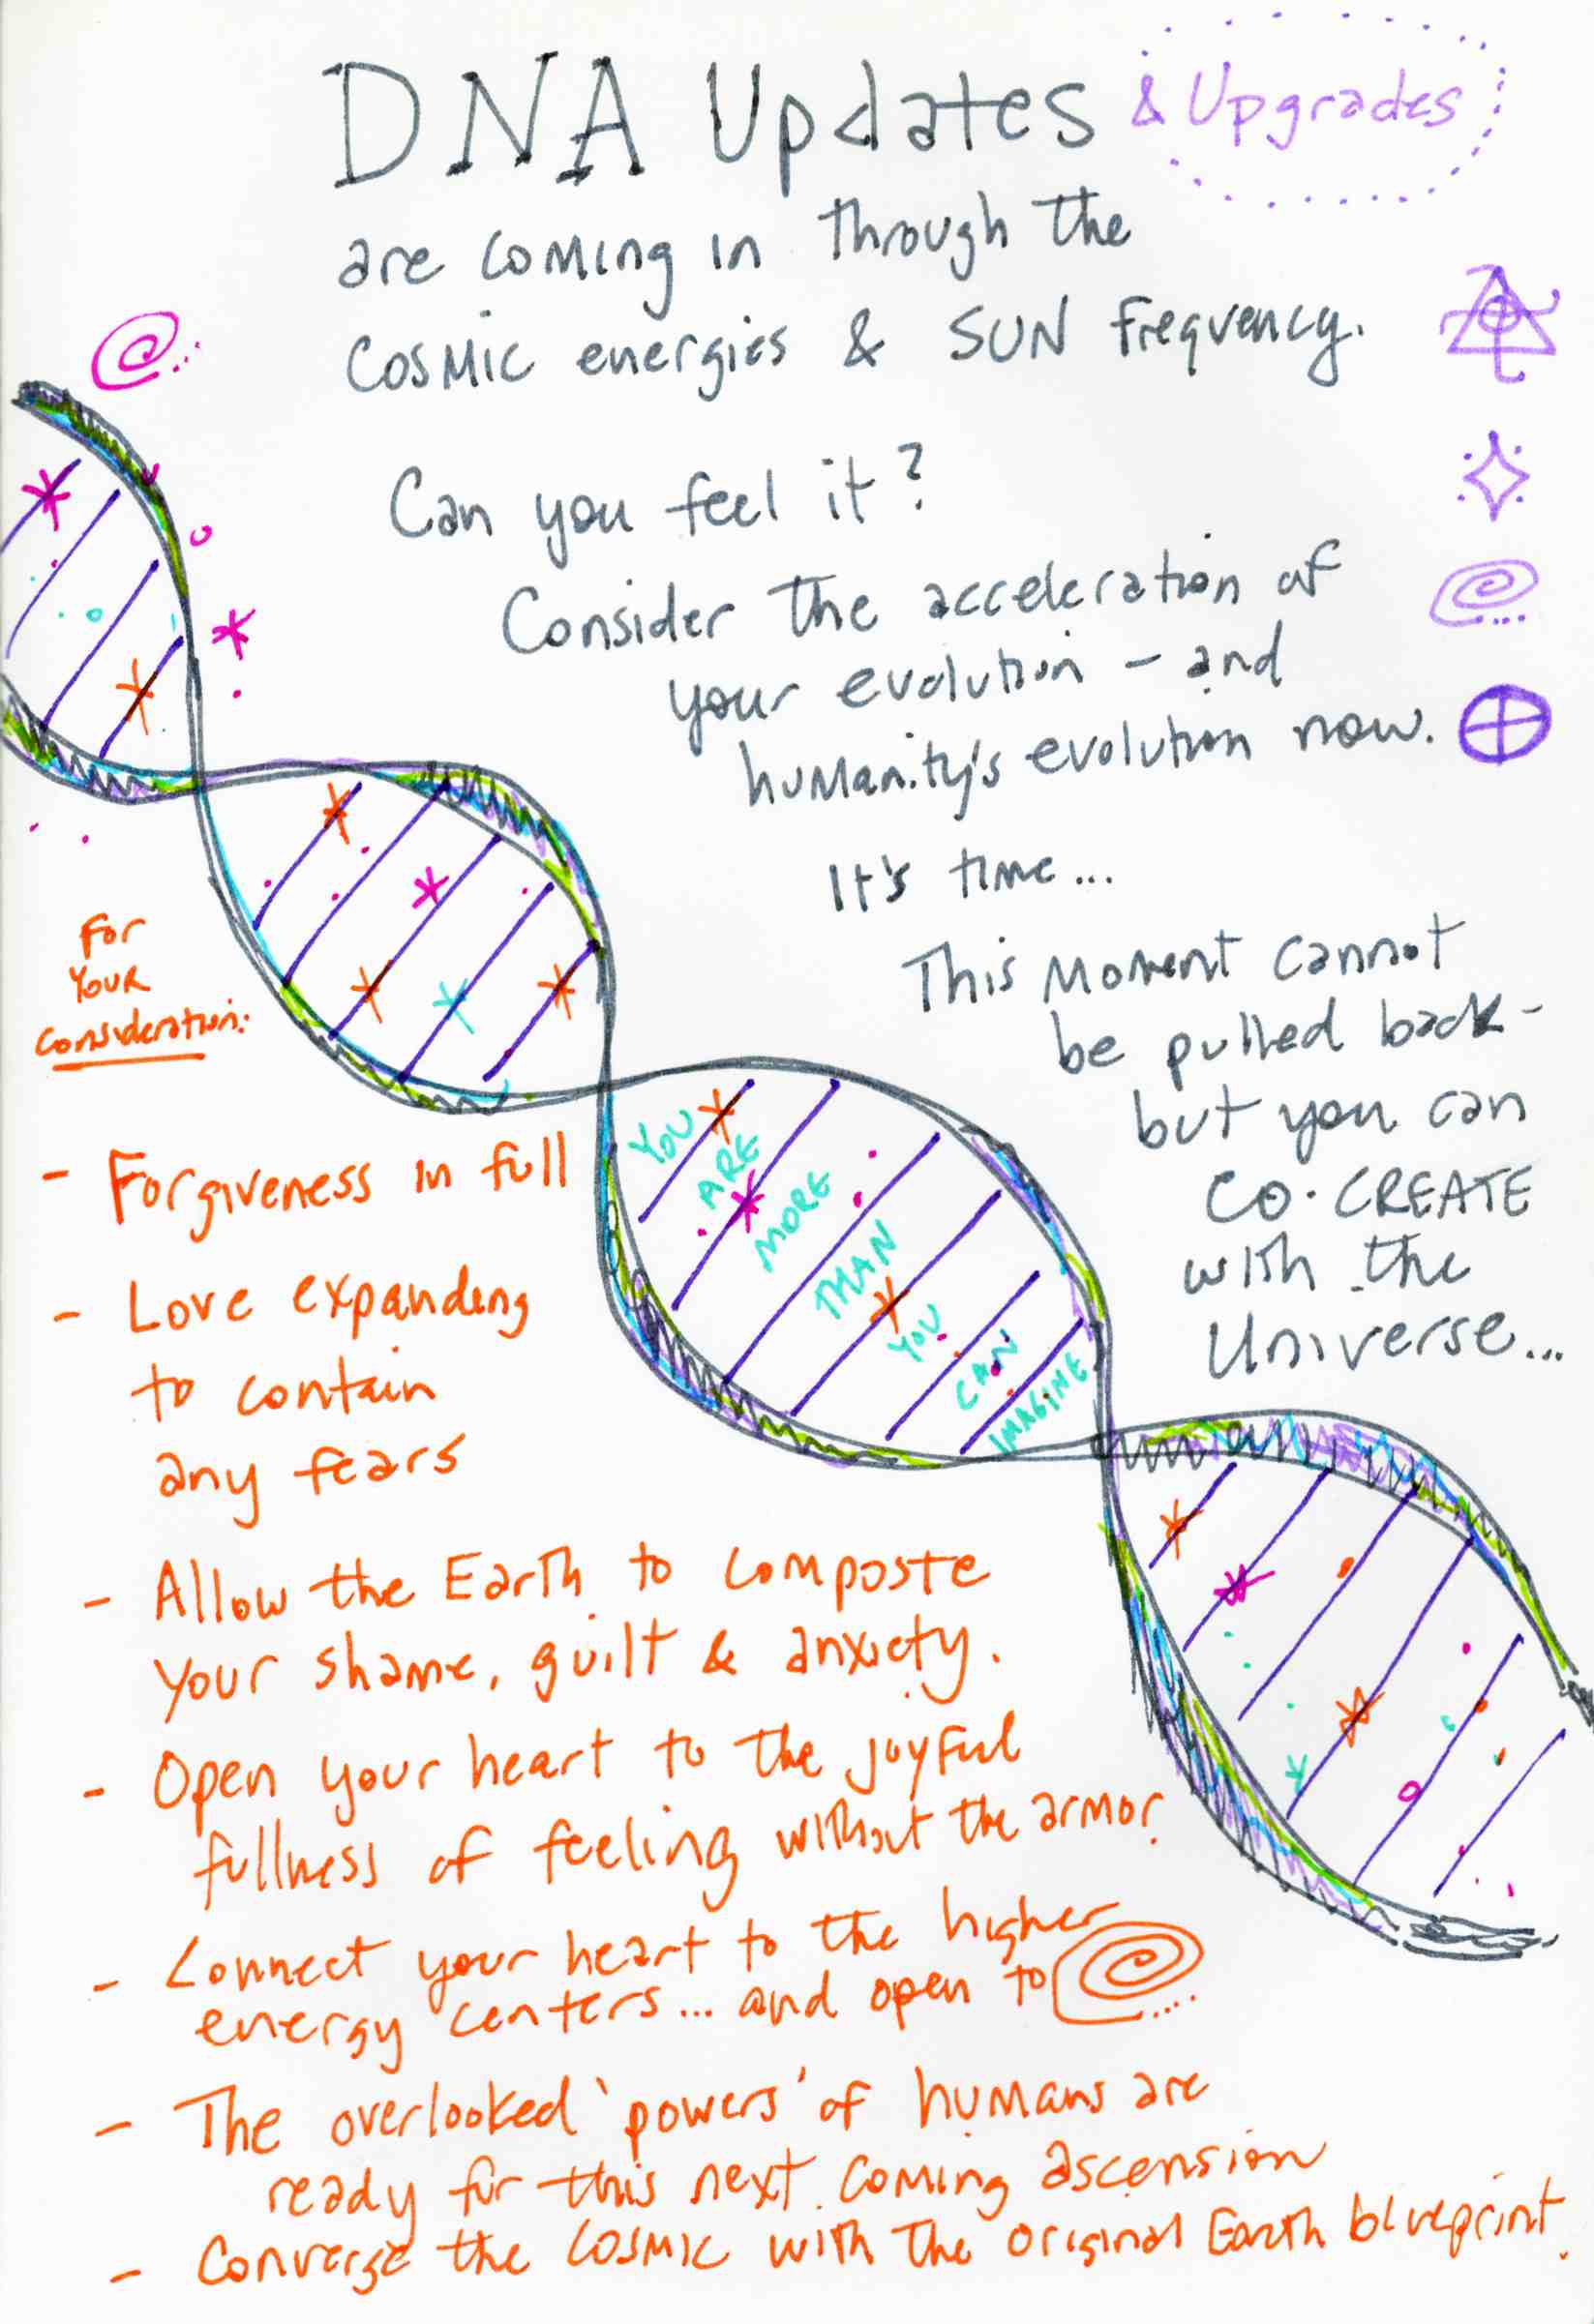 DNA Updates & Upgrades
are coming in through the
cosmic energies & SUN frequency.
Can you feel it?
Consider the acceleration of
your evolution - and
humanity's evolution now.
It's time...
This moment cannot
be pulled back -
but you can
CO·CREATE
with the
Universe...
YOU
ARE
MORE
THAN
YOU
CAN
IMAGINE
For
YOUR
consideration:
- Forgiveness in full
- Love expanding
to contain
any fears
- Allow the Earth to composte
your shame, guilt & anxiety.
- Open your heart to the joyful
fullness of feeling without the armor.
- Connect your heart to the higher
energy centers... and open to
- The overlooked 'powers' of humans are
ready for this next coming ascension
- Converge the cosmic with the original Earth blueprint.